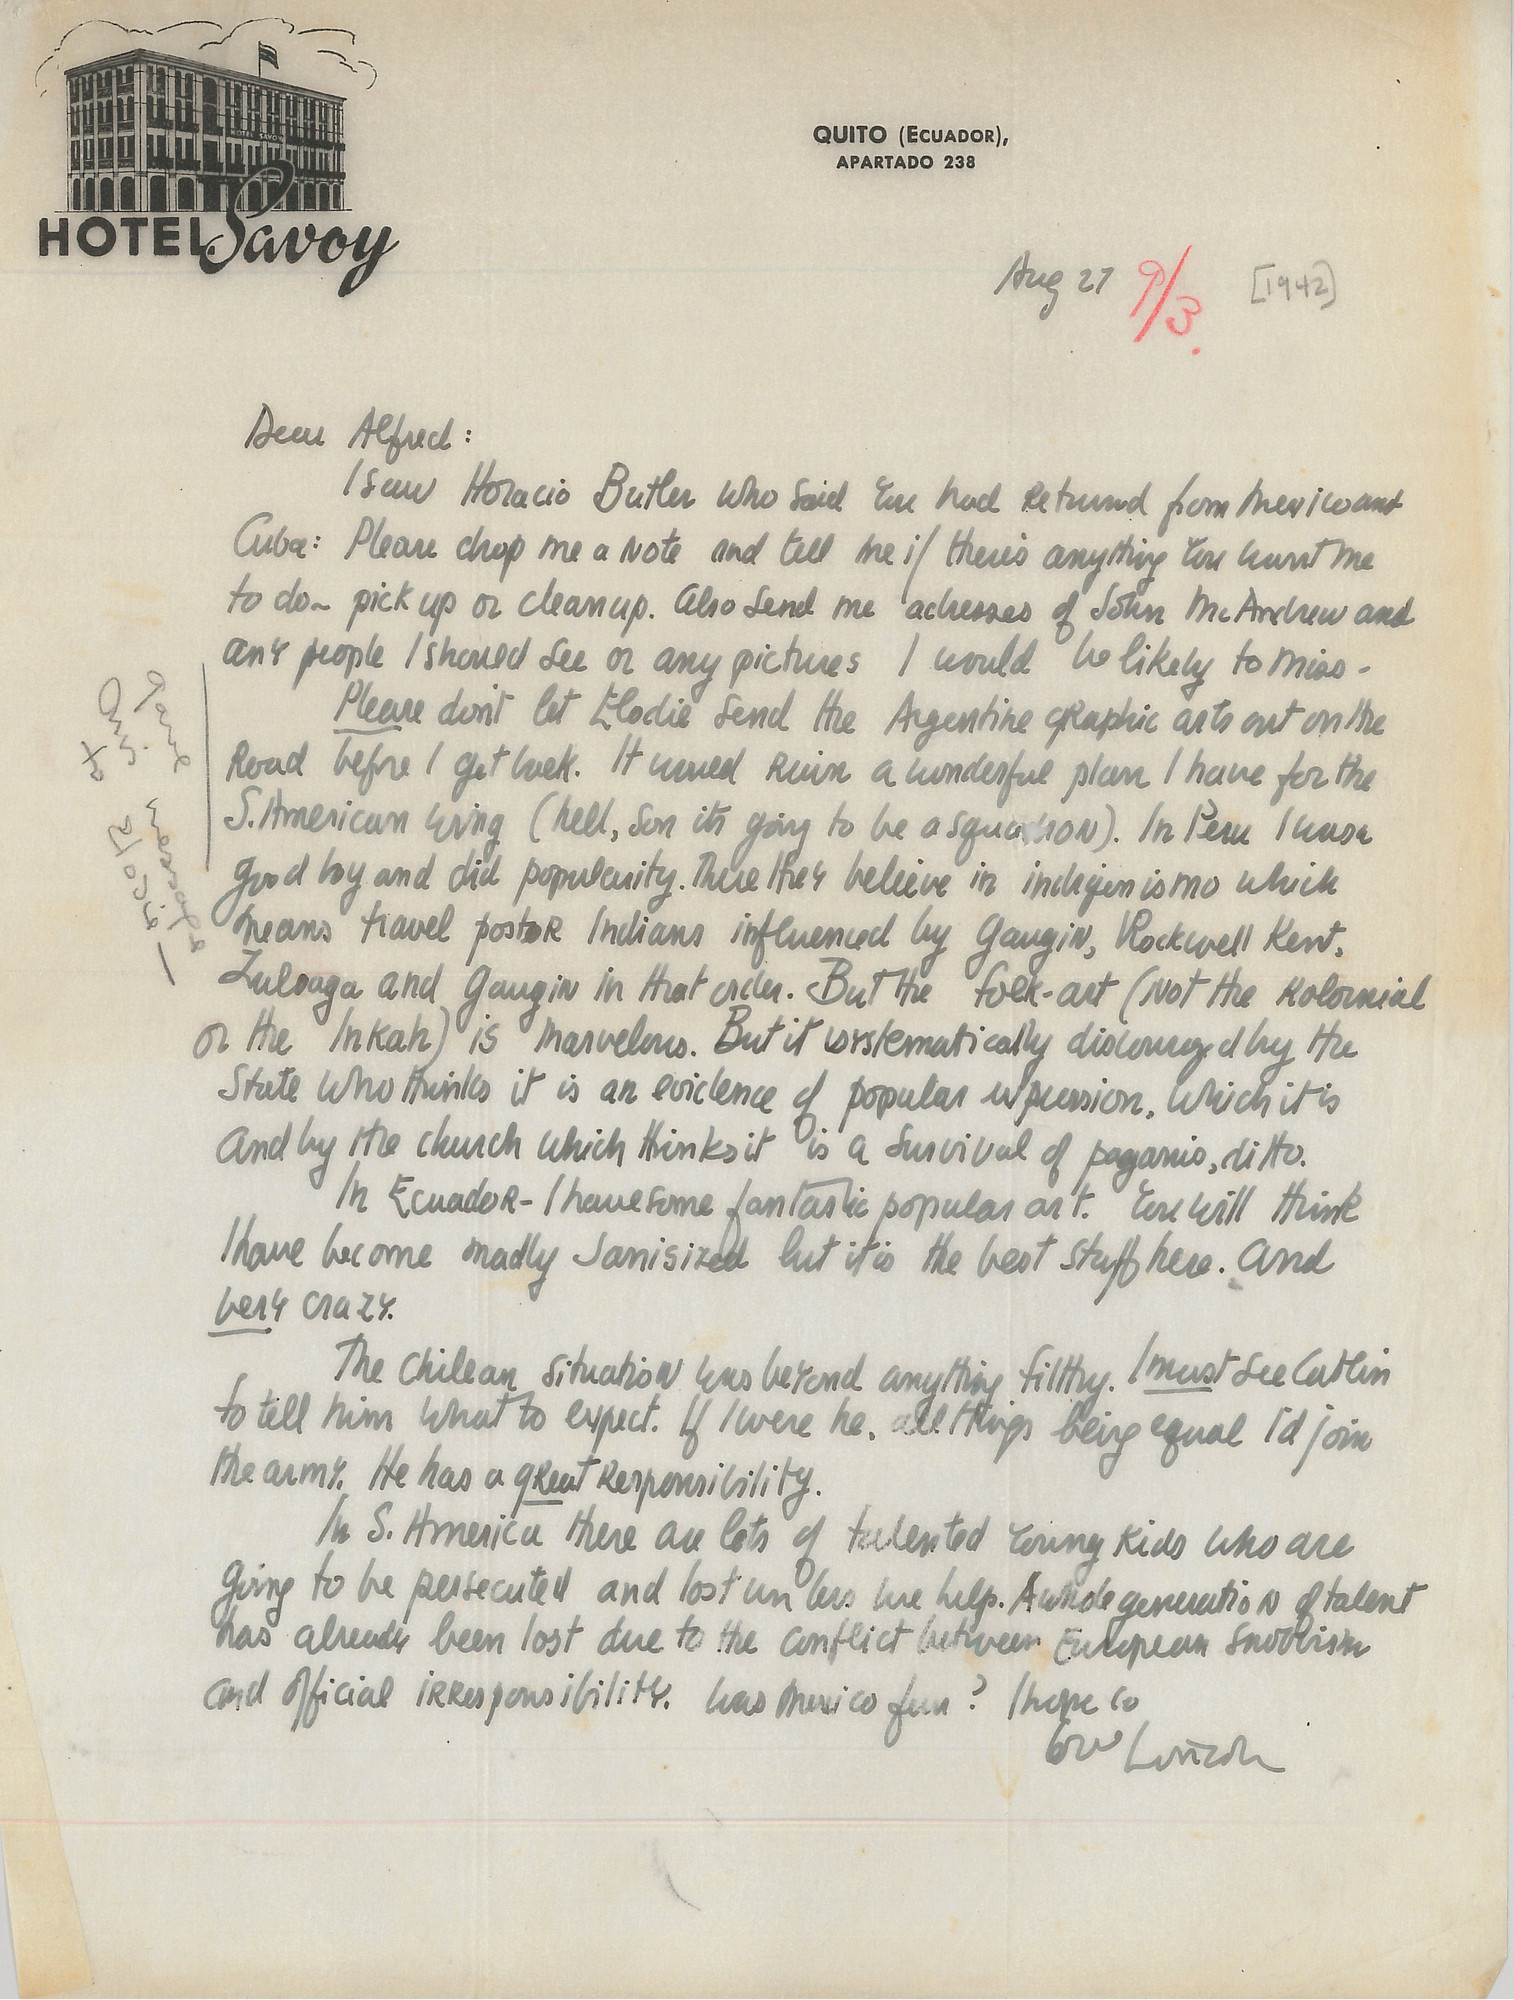 HOTEL Savoy
HOTEL SAVOY
QUITO (ECUADOR),
APARTADO 238
Aug 27 9/3. [1942]
Dear Alfred:
I saw Horacio Butler who said you had returned from Mexico and
Cuba: Please drop me a note and tell me if there's anything you want me
to do - pick up or clean up. Also send me adresses of John McAndrew and
any people I should see or any pictures I would be likely to miss -
Please don't let Elodie send the Argentine graphic arts out on the
Road before I get back. It would ruin a wonderful plan I have for the
S. American wing (hell, son it's going to be a squadron). In Peru I was a
good boy and did popularity. There they believe in indigenismo which
means travel poster Indians influenced by Gaugin, Rockwell Kent,
Zuloaga and Gaugin in that order. But the folk-art (not the Kolonial
or the Inkah) is marvelous. But it is systematically discouraged by the
State who thinks it is an evidence of popular expression, which it is
and by the church which thinks it is a survival of paganis, ditto.
In Ecuador - I have some fantastic popular art. You will think
I have become madly Janisized but it is the best stuff here. And
very crazy.
The Chilean situation was beyond anything filthy. I must see Catlin
to tell him what to expect. If I were he, all things being equal I'd join
the army. He has a great responsibility.
In S. America there are lots of talented young kids who are
going to be persecuted and lost unless we help. A whole generation of talent
has already been lost due to the conflict between European snobbism
and official irresponsibility. Was Mexico fun? I hope so
Lincoln
gave message
this
to Elodie